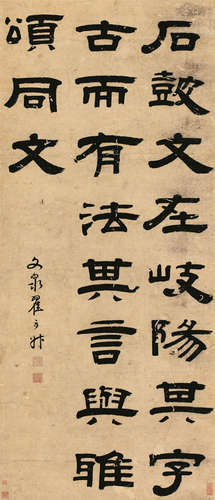 石鼓文在岐陽其字
古而有法其言與雅
頌同文
文泉翟云升